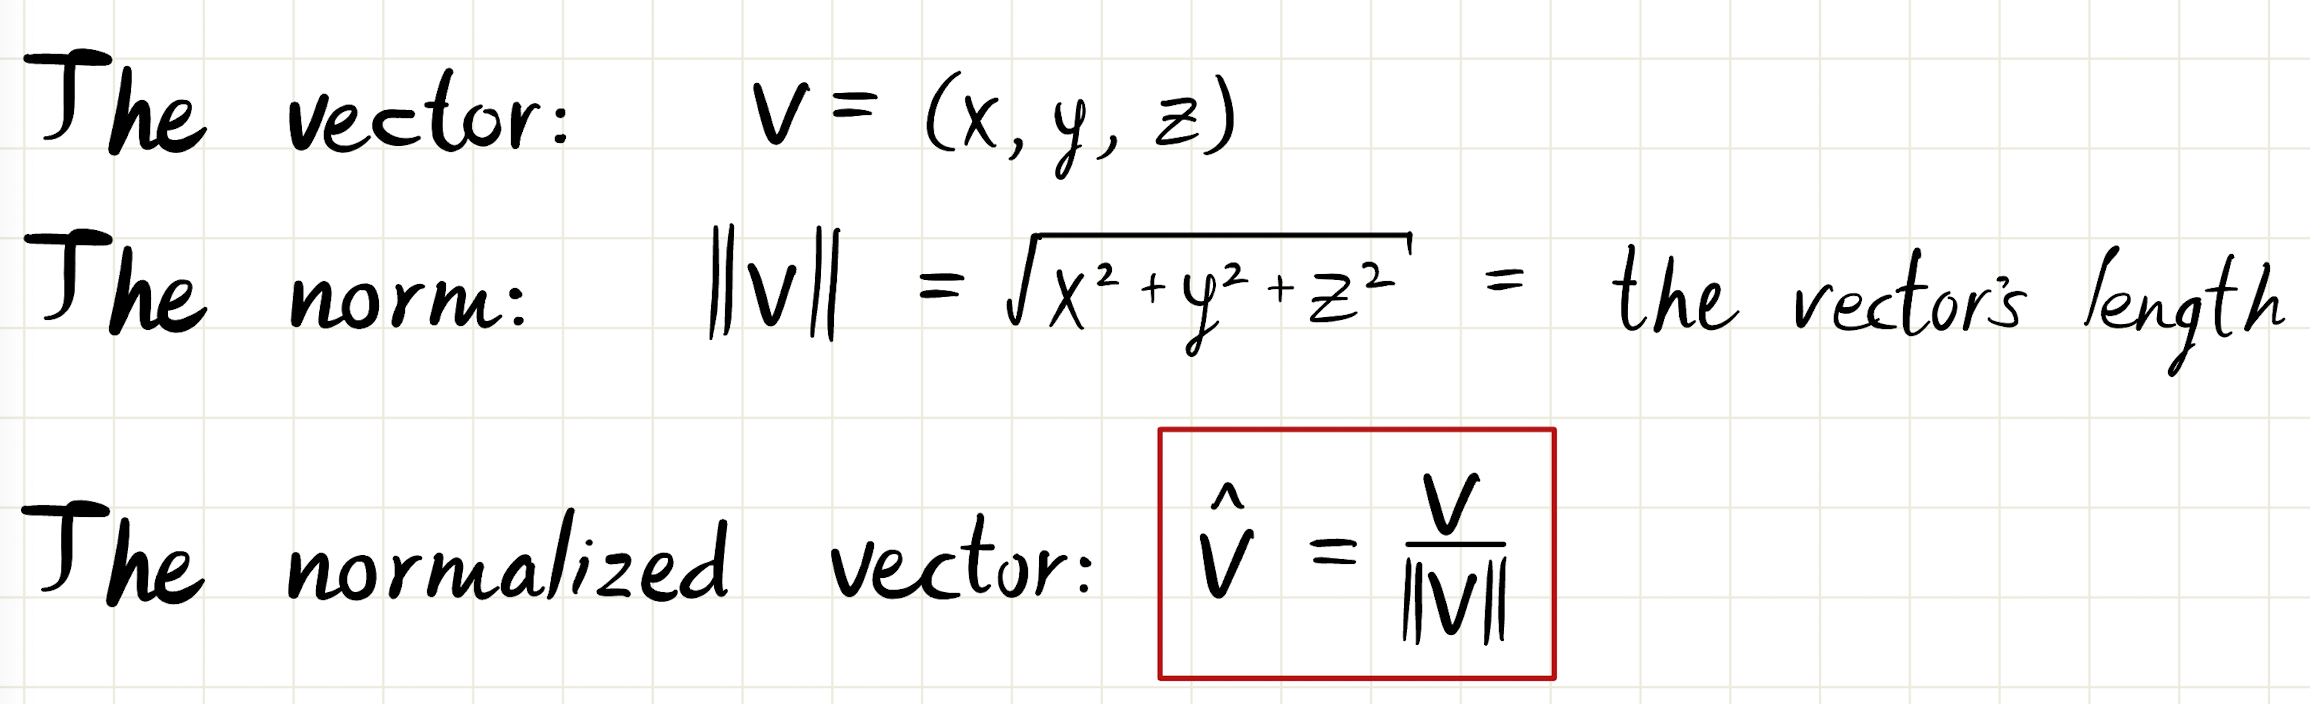 The vector: v = (x, y, z)
The norm: ||v|| = √(x² + y² + z²) = the vector's length
The normalized vector: v̂ = v / ||v||